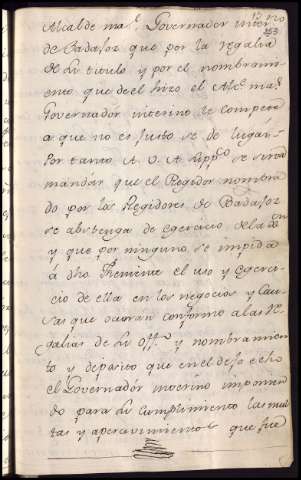 Alcalde ma.r Governador interino
153
de Badajoz que por la regalia
de su titulo y por el nombrami-
ento que de el hizo el Alc.e ma.r
Governador interino le compete
a que no es justo se de lugar
Por tanto A V. A. supp.co se sirva
mandar que el Regidor nombra
do por los Regidores de Badajoz
se abstenga de egercicio de la
y que por ninguno se impida
a dho Theniente el uso y egerci-
cio de ella en los negocios y Cau-
sas que ocurran conforme a las re-
galias de su off.o y nombramien
to y deposito que en el desp echo
el Governador interino imponien
do para su cumplimiento las mul
tas y apercevimientos que fue